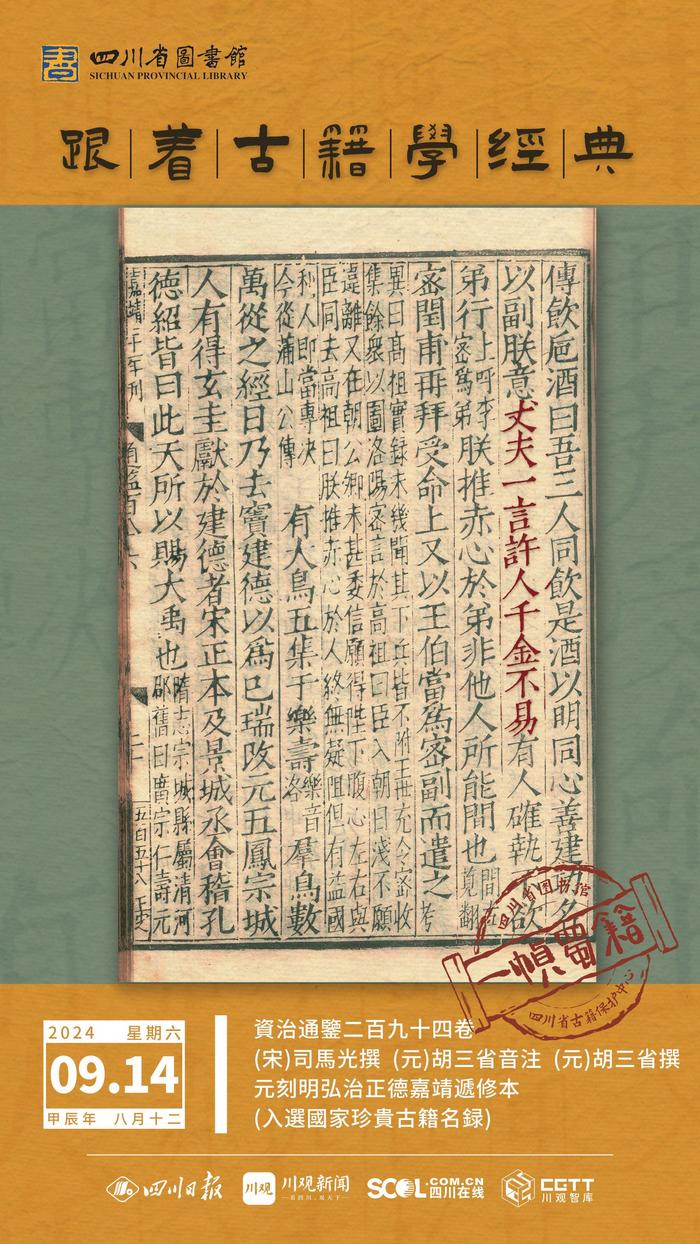 四川省圖書館
SICHUAN PROVINCIAL LIBRARY
跟着古籍學經典
傳飲巵酒曰吾三人同飲是酒以明同心善建功名
以副朕意丈夫一言許人千金不易有人確執不欲
弟行上呼李密爲弟朕推赤心於弟非他人所能間也間古莧翻
密閏甫再拜受命上又以王伯當爲密副而遣之考
異曰高祖實録未幾聞其下兵皆不附王世充令密收
集餘衆以圖洛陽密言於高祖曰臣入朝日淺不願
違離又在朝公卿未甚委信願得陛下腹心左右與
臣同去高祖曰朕推赤心於人終無疑阻但有益國
利人即當專决
今從蒲山公傳
有大鳥五集于樂壽樂音洛羣鳥數
萬從之經日乃去竇建德以爲己瑞改元五鳳宗城
人有得玄圭獻於建德者宋正本及景城丞會稽孔
德紹皆曰此天所以賜大禹也隋志宗城縣屬清河郡舊曰廣宗仁壽元
嘉靖二十年刊
五百五十八
四川省图书馆
四川省古籍保护中心
2024 星期六
09.14
甲辰年 八月十二
資治通鑒二百九十四卷
(宋)司馬光撰 (元)胡三省音注 (元)胡三省撰
元刻明弘治正德嘉靖遞修本
(入選國家珍貴古籍名録)
四川日报
川观 川观新闻
SCOL.COM.CN 四川在线
CGTT 川观智库